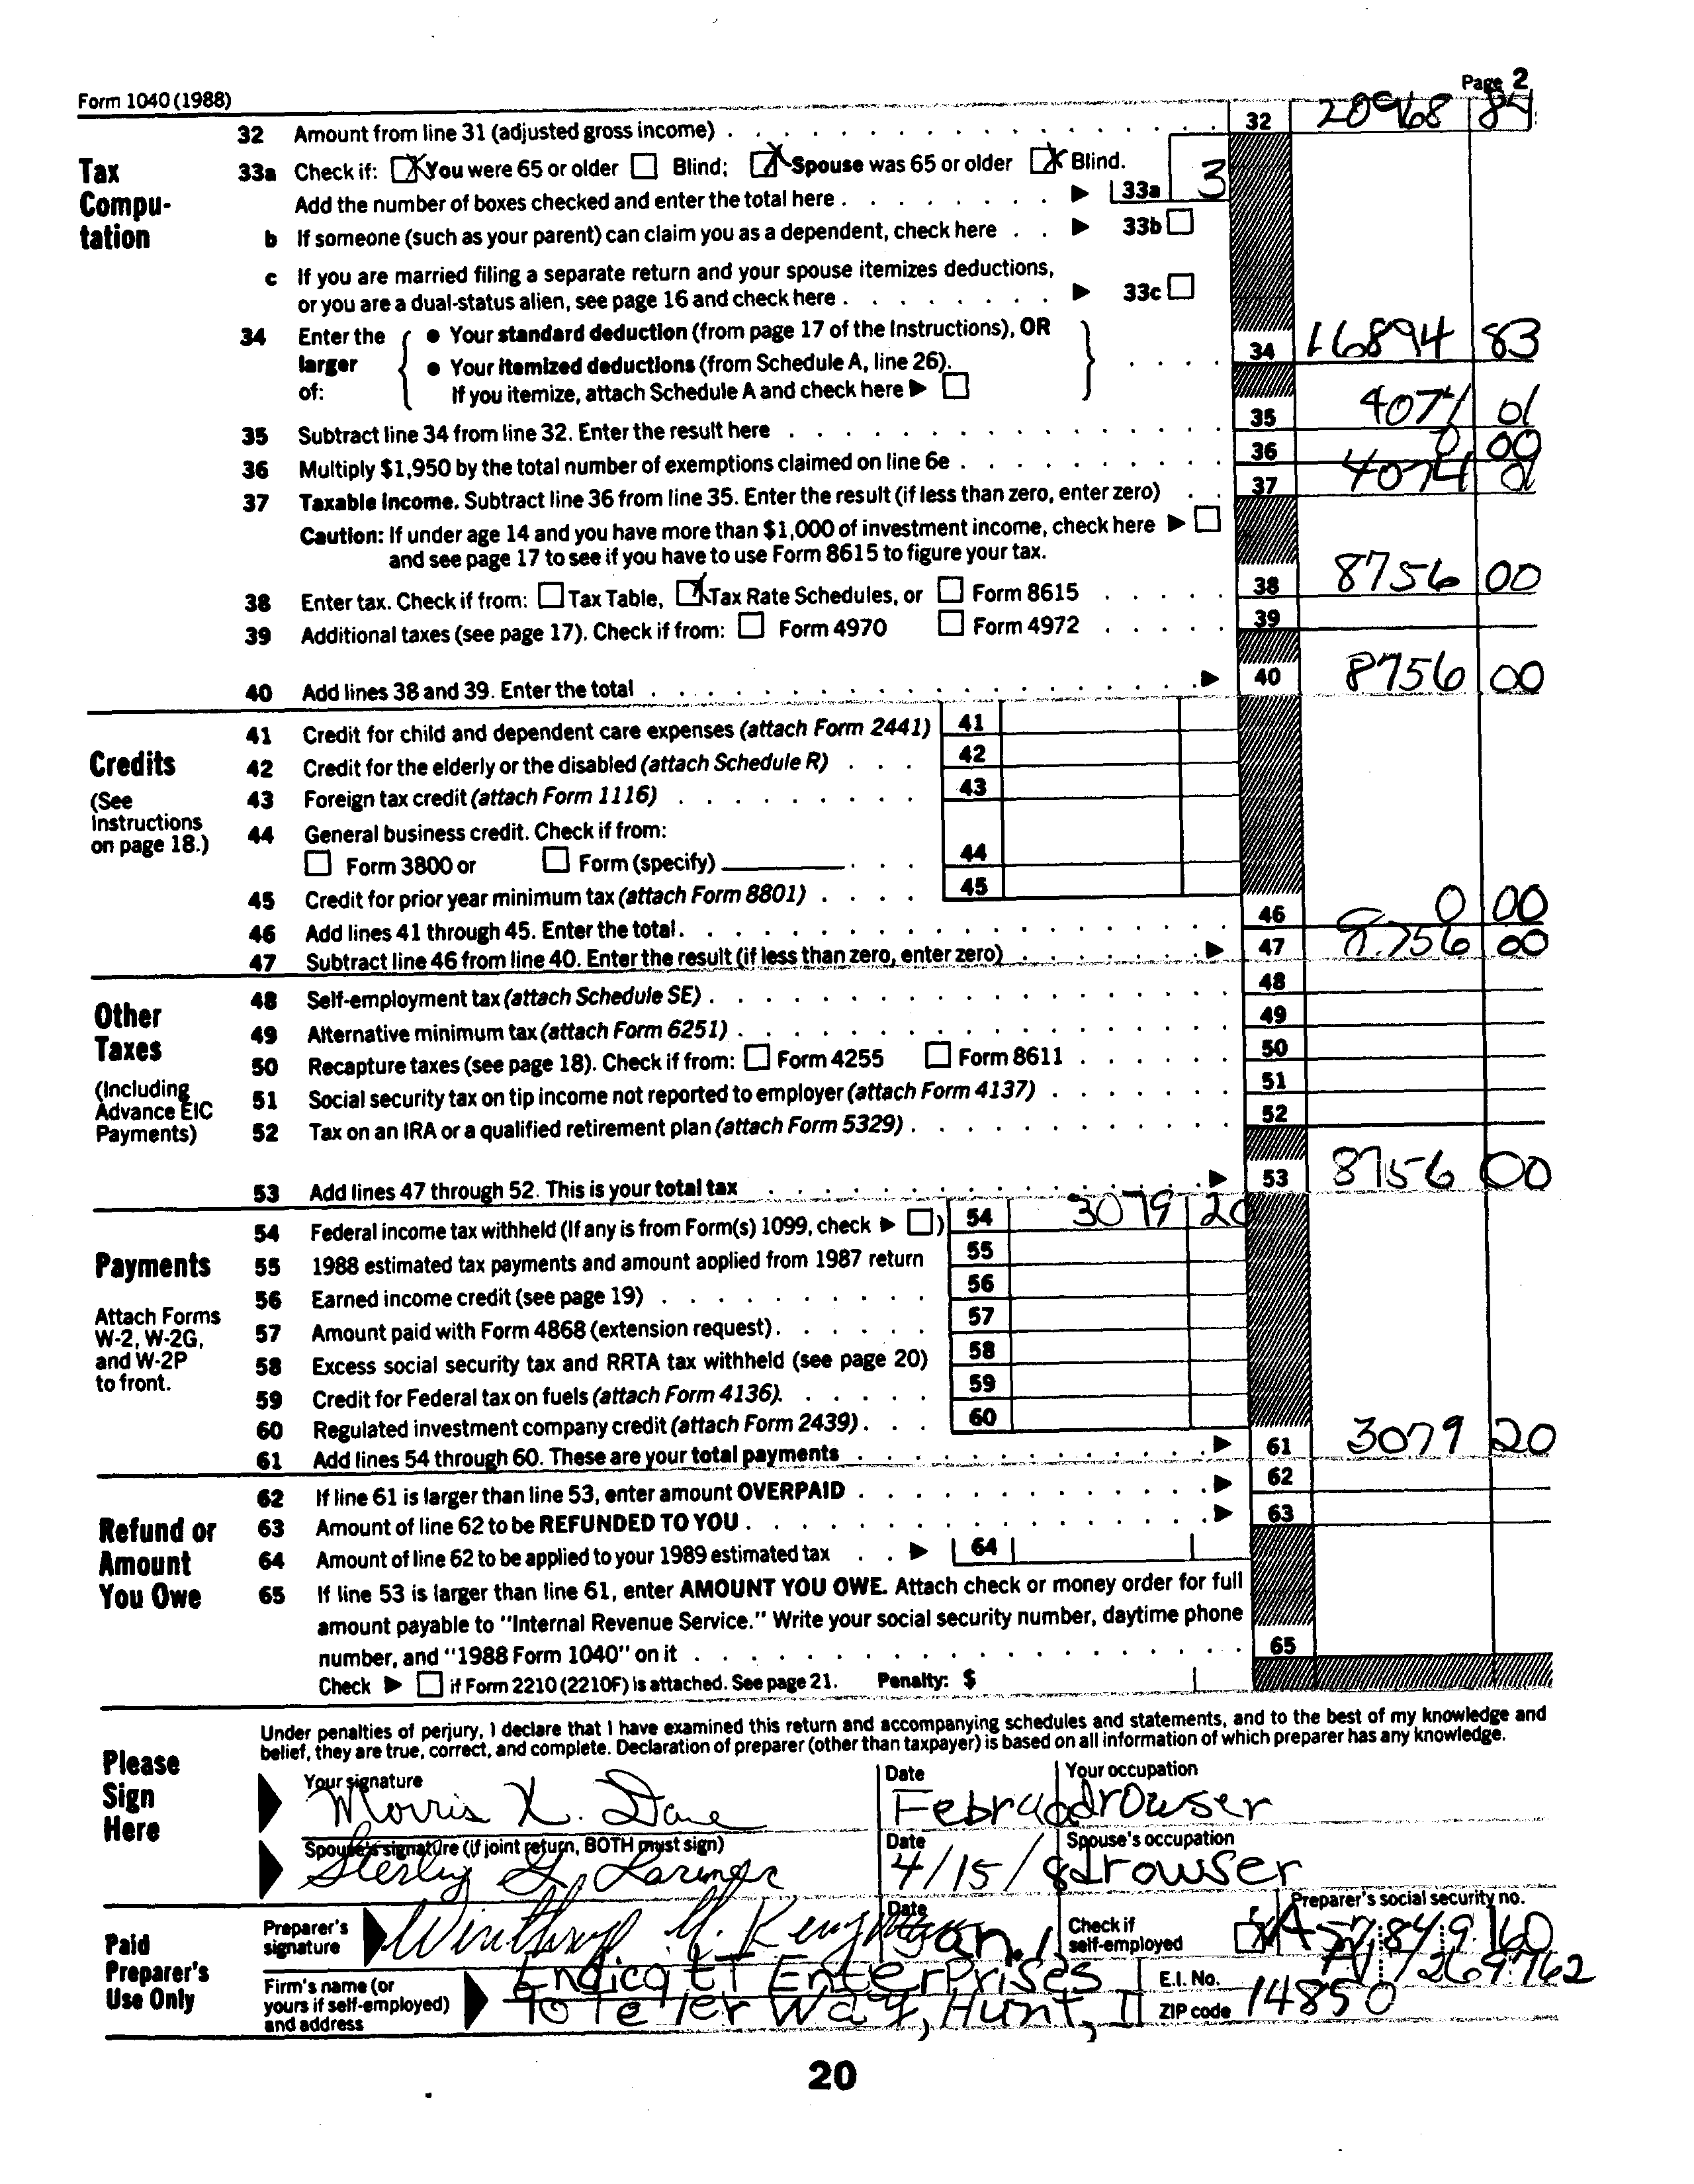 Form 1040 (1988)
Page 2
Tax Compu-tation
32 Amount from line 31 (adjusted gross income) 32 20968 84
33a Check if: You were 65 or older Blind; Spouse was 65 or older Blind.
Add the number of boxes checked and enter the total here 33a 3
b If someone (such as your parent) can claim you as a dependent, check here 33b
c If you are married filing a separate return and your spouse itemizes deductions,
or you are a dual-status alien, see page 16 and check here 33c
34 Enter the larger of: ● Your standard deduction (from page 17 of the Instructions), OR
● Your itemized deductions (from Schedule A, line 26).
If you itemize, attach Schedule A and check here 34 16894 83
35 Subtract line 34 from line 32. Enter the result here 35 4074 01
36 Multiply $1,950 by the total number of exemptions claimed on line 6e 36 0 00
37 Taxable income. Subtract line 36 from line 35. Enter the result (if less than zero, enter zero) 37 4074 01
Caution: If under age 14 and you have more than $1,000 of investment income, check here
and see page 17 to see if you have to use Form 8615 to figure your tax.
38 Enter tax. Check if from: Tax Table, Tax Rate Schedules, or Form 8615 38 8756 00
39 Additional taxes (see page 17). Check if from: Form 4970 Form 4972 39
40 Add lines 38 and 39. Enter the total 40 8756 00
Credits
(See Instructions on page 18.)
41 Credit for child and dependent care expenses (attach Form 2441) 41
42 Credit for the elderly or the disabled (attach Schedule R) 42
43 Foreign tax credit (attach Form 1116) 43
44 General business credit. Check if from:
Form 3800 or Form (specify) 44
45 Credit for prior year minimum tax (attach Form 8801) 45
46 Add lines 41 through 45. Enter the total 46 0 00
47 Subtract line 46 from line 40. Enter the result (if less than zero, enter zero) 47 8756 00
Other Taxes
(Including Advance EIC Payments)
48 Self-employment tax (attach Schedule SE) 48
49 Alternative minimum tax (attach Form 6251) 49
50 Recapture taxes (see page 18). Check if from: Form 4255 Form 8611 50
51 Social security tax on tip income not reported to employer (attach Form 4137) 51
52 Tax on an IRA or a qualified retirement plan (attach Form 5329) 52
53 Add lines 47 through 52. This is your total tax 53 8756 00
Payments
Attach Forms W-2, W-2G, and W-2P to front.
54 Federal income tax withheld (If any is from Form(s) 1099, check ) 54 3079 20
55 1988 estimated tax payments and amount applied from 1987 return 55
56 Earned income credit (see page 19) 56
57 Amount paid with Form 4868 (extension request) 57
58 Excess social security tax and RRTA tax withheld (see page 20) 58
59 Credit for Federal tax on fuels (attach Form 4136). 59
60 Regulated investment company credit (attach Form 2439) 60
61 Add lines 54 through 60. These are your total payments 61 3079 20
Refund or Amount You Owe
62 If line 61 is larger than line 53, enter amount OVERPAID 62
63 Amount of line 62 to be REFUNDED TO YOU 63
64 Amount of line 62 to be applied to your 1989 estimated tax 64
65 If line 53 is larger than line 61, enter AMOUNT YOU OWE. Attach check or money order for full
amount payable to "Internal Revenue Service." Write your social security number, daytime phone
number, and "1988 Form 1040" on it 65
Check if Form 2210 (2210F) is attached. See page 21. Penalty: $
Please Sign Here
Under penalties of perjury, I declare that I have examined this return and accompanying schedules and statements, and to the best of my knowledge and
belief, they are true, correct, and complete. Declaration of preparer (other than taxpayer) is based on all information of which preparer has any knowledge.
Your signature Date Your occupation
Morris X. Dane
Spouse's signature (if joint return, BOTH must sign) Date Spouse's occupation
4/15/
Paid Preparer's Use Only
Preparer's signature Winthrop Date Check if self-employed Preparer's social security no.
Firm's name (or yours if self-employed) and address Endicott Enterprises E.I. No.
Way, Hunt, ZIP code 14850
20